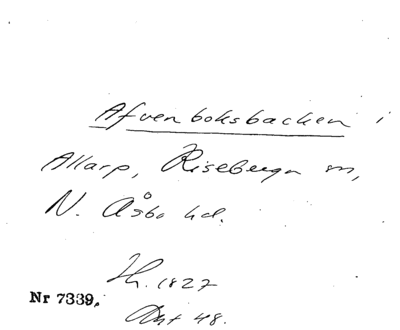 Afvenboksbacken i
Allarp, Riseberga sn,
N. Åsbo hd.
Th. 1827
Akt 48.
Nr 7339.